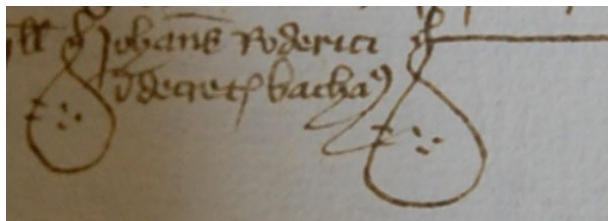 Johan̄s Roderici
ī decret̄ bachaꝰ